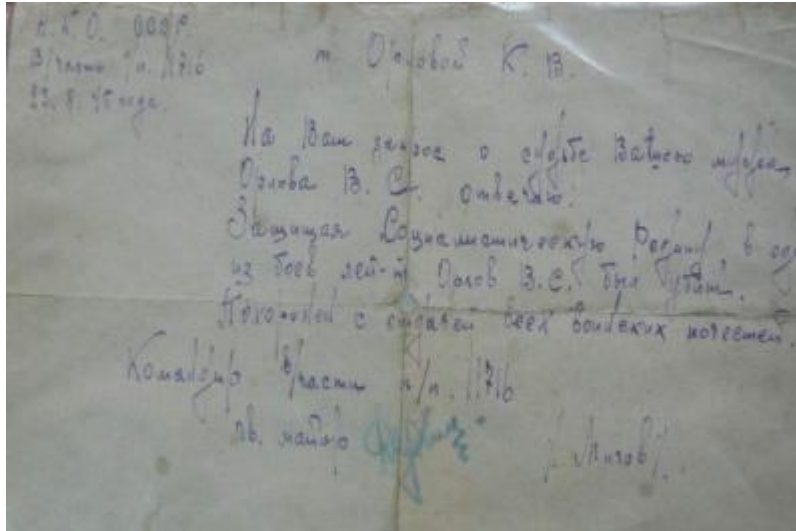 Н.К.О. СССР.
В/часть п/п. 11716
т Орловой К. В.
23. 8. 45 года.
На Ваш запрос о судьбе Вашего мужа,
Орлова В. С. отвечаю:
Защищая Социалистическую Родину в од
из боев лей-т Орлов В.С. был убит.
Похоронен с отдачей всех воинских почестей.
Командир в/части п/п. 11716
гв. майор